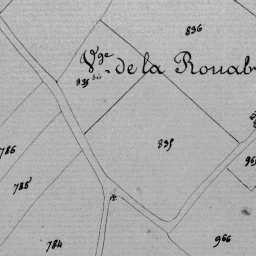 836
Vge de la Rouab
835 bis
835
786
785
784
966